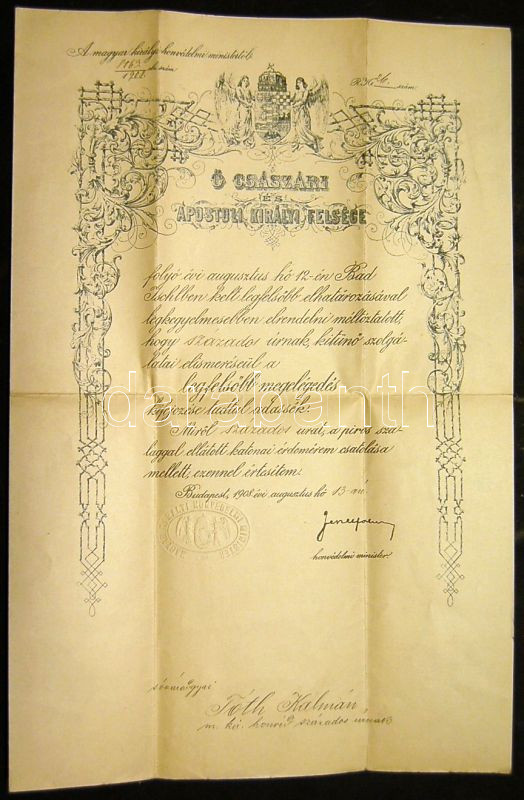 A magyar királyi honvédelmi ministertől.
1908.
szám
Ő CSÁSZÁRI
ÉS
APOSTOLI KIRÁLYI FELSÉGE
folyó évi augusztus hó 12-én Bad
Ischlben kelt legfelsőbb elhatározásával
legkegyelmesebben elrendelni méltóztatott,
hogy százados úrnak, kitünő szolgá-
latai elismeréseül a
legfelsőbb megelégedés
kifejezése tudtul adassék.
darabanth
Miről százados urat, a piros sza-
laggal ellátott katonai érdemérem csatolása
mellett, ezennel értesitem.
Budapest, 1908 évi augusztus hó 13-án.
honvédelmi minister.
Tóth Kálmán
m. kir. honvéd százados úrnak